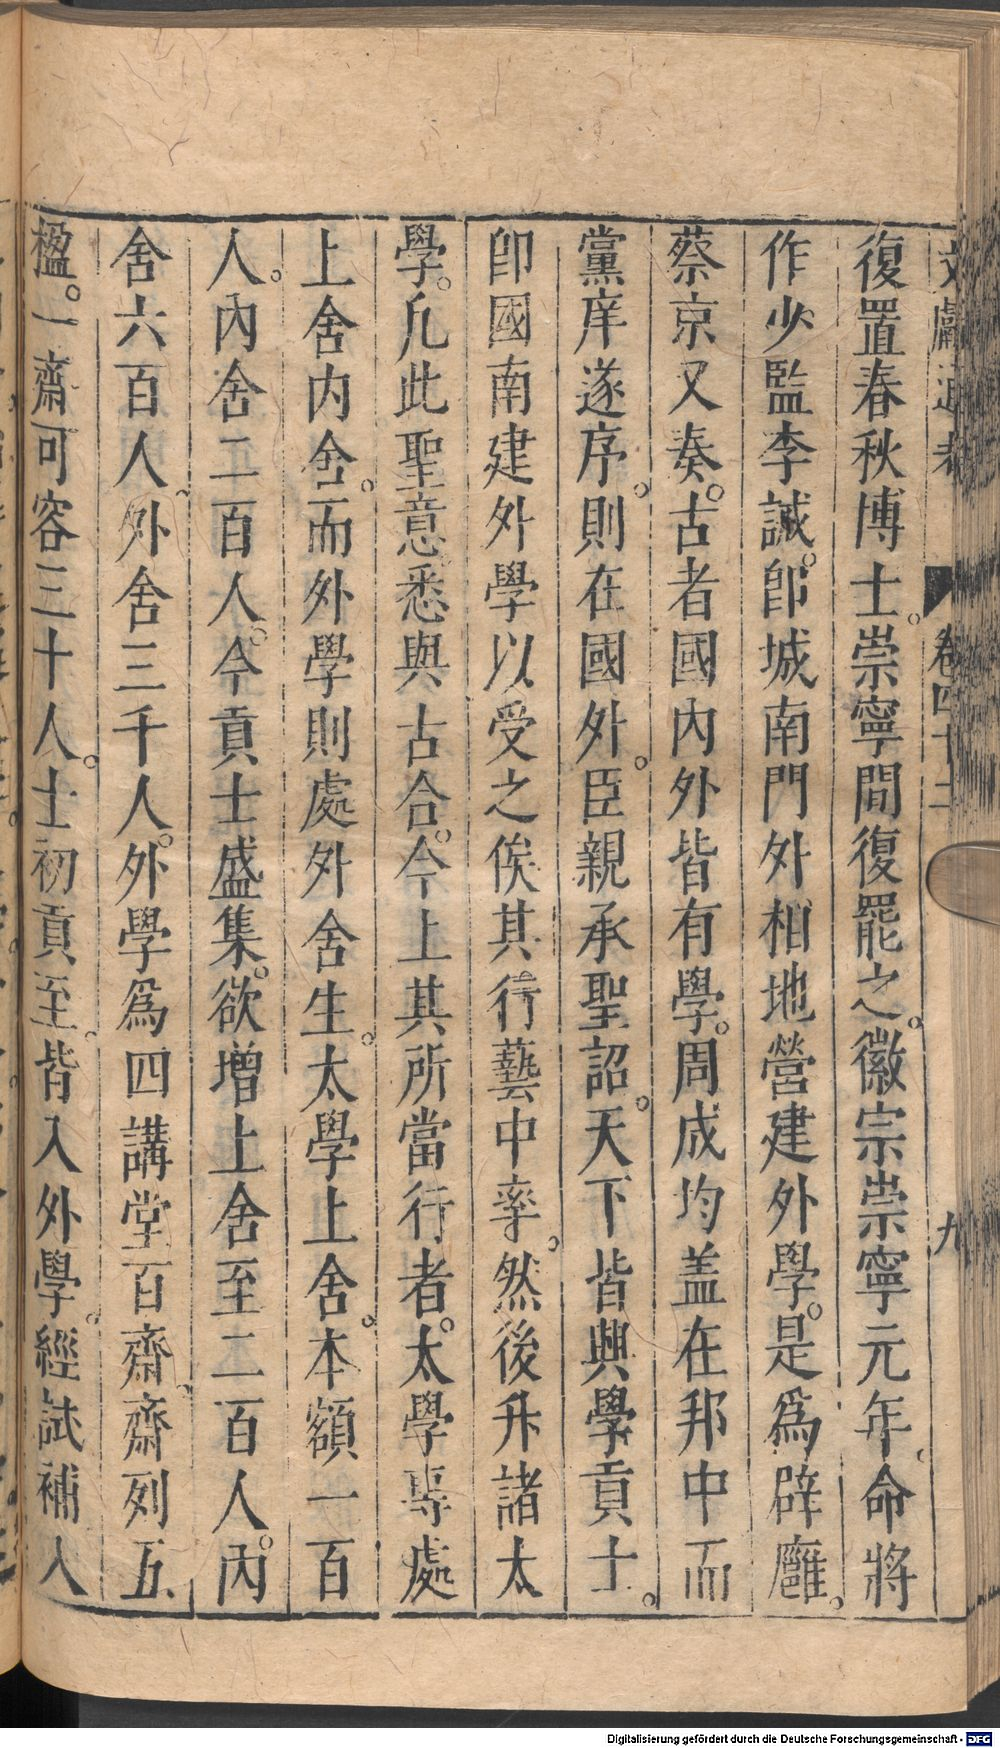 文獻通考 卷四十二 九
復置春秋博士。崇寧間復罷之。徽宗崇寧元年。命將
作少監李誡。卽城南門外相地營建外學。是爲辟廱。
蔡京又奏。古者國內外皆有學。周成均盖在邦中而
黨庠遂序。則在國外。臣親承聖詔。天下皆興學貢士。
卽國南建外學以受之俟其行藝中率。然後升諸太
學。凡此聖意悉與古合。今上其所當行者。太學專處
上舍內舍。而外學則處外舍生。太學上舍。本額一百
人。內舍二百人。今貢士盛集。欲增上舍至二百人。內
舍六百人。外舍三千人。外學爲四講堂百齋。齋列五
楹。一齋可容三十人。士初貢至。皆入外學。經試補入
Digitalisierung gefördert durch die Deutsche Forschungsgemeinschaft - DFG